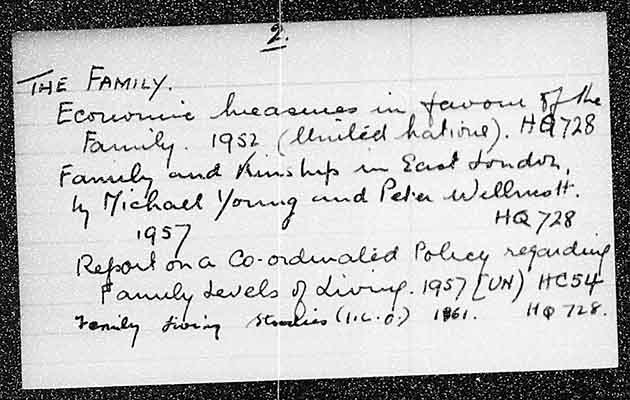 2.
THE FAMILY.
Economic Measures in favour of the
Family. 1952 (United Nations). HQ728
Family and Kinship in East London,
by Michael Young and Peter Willmott.
1957 HQ 728
Report on a Co-ordinated Policy regarding
Family Levels of Living. 1957 [UN) HC54
Family Living Studies (I.L.O.) 1961. HQ 728.